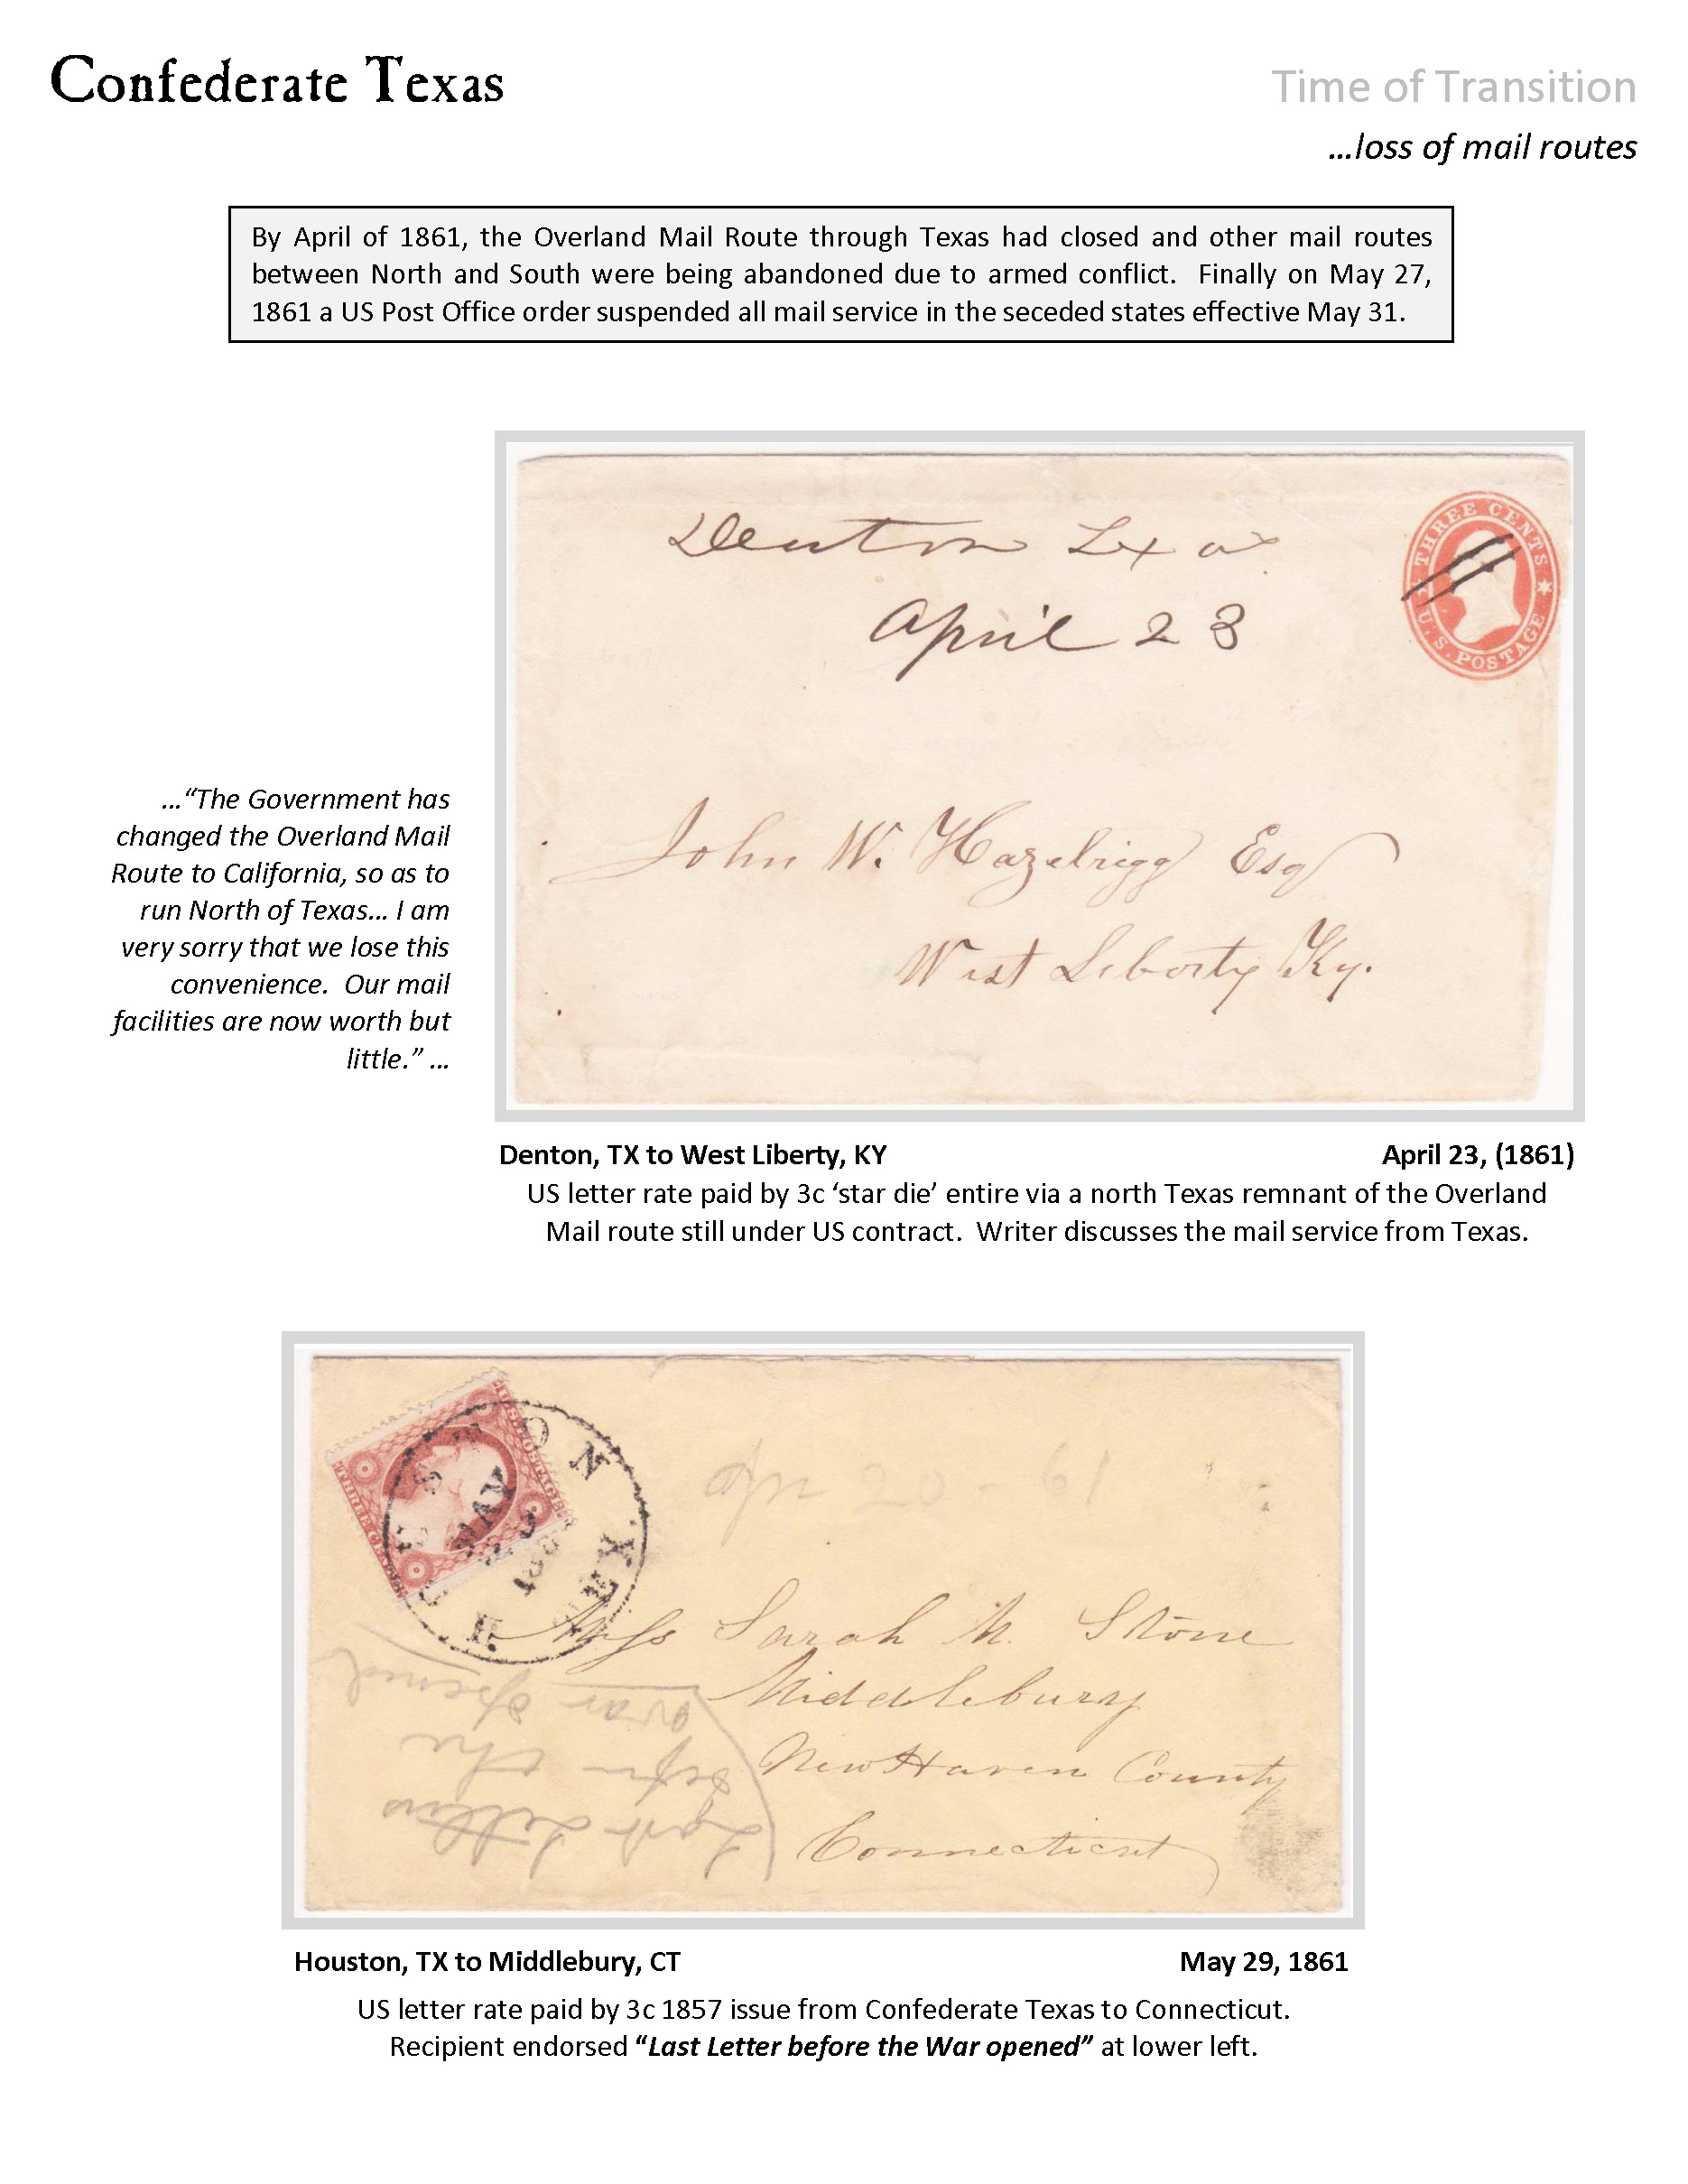 Confederate Texas
Time of Transition
…loss of mail routes
By April of 1861, the Overland Mail Route through Texas had closed and other mail routes
between North and South were being abandoned due to armed conflict.  Finally on May 27,
1861 a US Post Office order suspended all mail service in the seceded states effective May 31.
Denton Txas
April 23
THREE CENTS
U.S. POSTAGE
John W. Hazelrigg Esq
West Liberty Ky.
…“The Government has
changed the Overland Mail
Route to California, so as to
run North of Texas… I am
very sorry that we lose this
convenience.  Our mail
facilities are now worth but
little.” …
Denton, TX to West Liberty, KY
April 23, (1861)
US letter rate paid by 3c ‘star die’ entire via a north Texas remnant of the Overland
Mail route still under US contract.  Writer discusses the mail service from Texas.
U.S. POSTAGE
THREE CENTS
HOUSTON TEX
MAY
Apr 20 - 61
Miss Sarah M. Stone
Middlebury
New Haven County
Connecticut
Last Letters
before the
war opened
Houston, TX to Middlebury, CT
May 29, 1861
US letter rate paid by 3c 1857 issue from Confederate Texas to Connecticut.
Recipient endorsed “Last Letter before the War opened” at lower left.